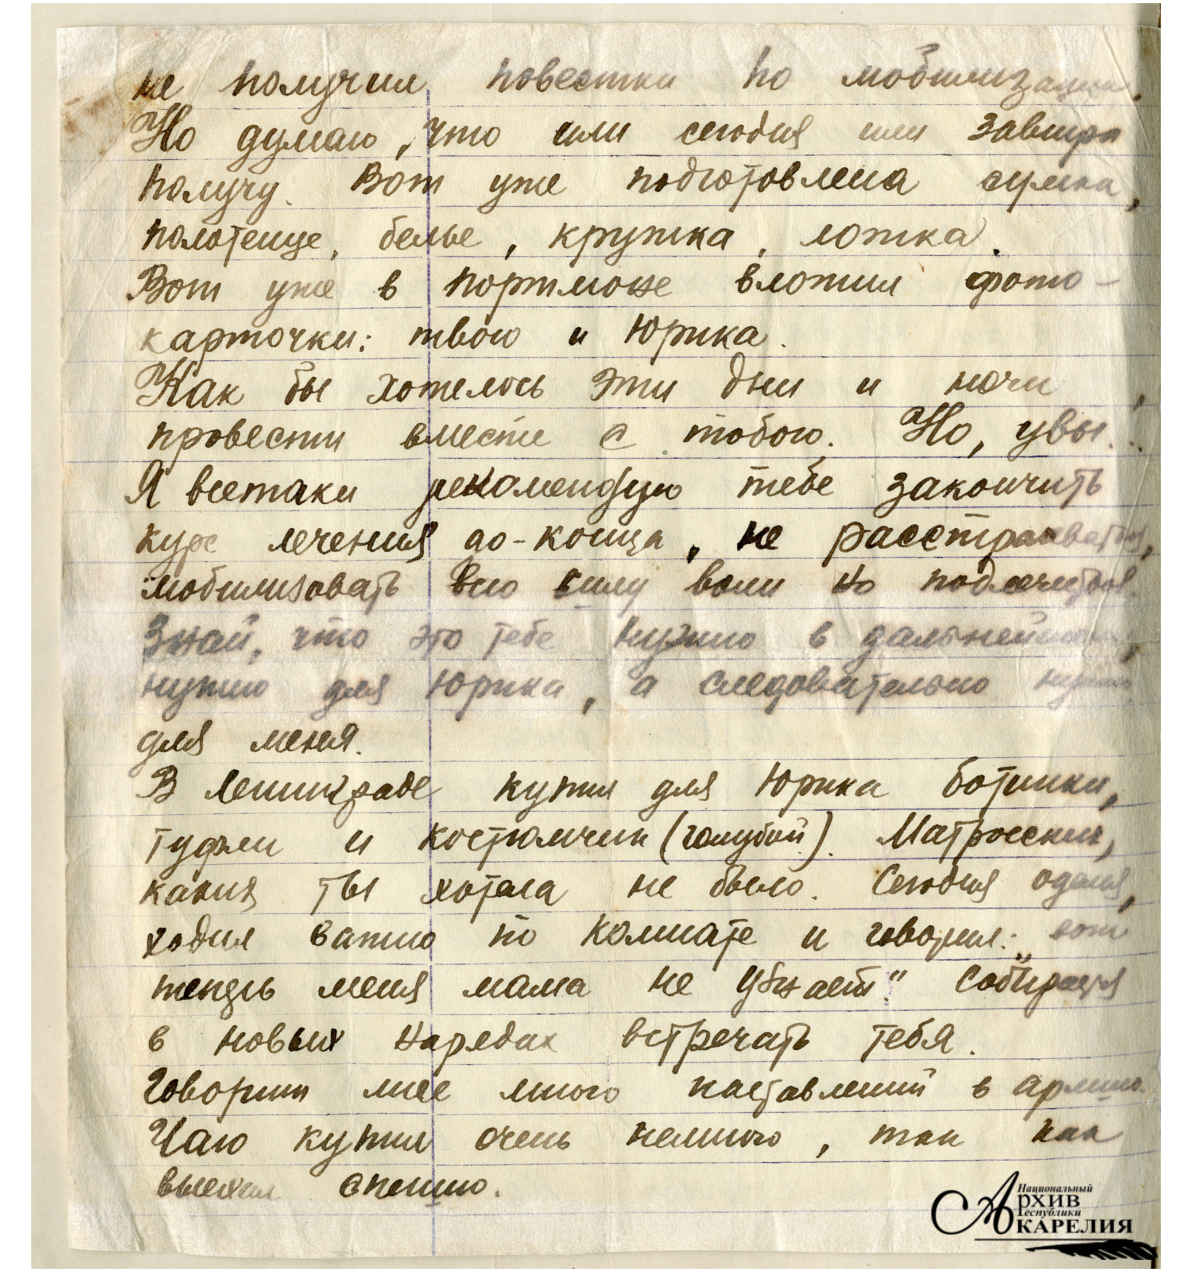 не получил повестки по мобилизации.
Но думаю, что или сегодня или завтра
получу. Вот уже подготовлена сумка,
полотенце, белье, кружка, ложка.
Вот уже в портмоне вложил фото-
карточки: твою и Юрика.
Как бы хотелось эти дни и ночи
провести вместе с тобою. Но, увы..
Я всетаки рекомендую тебе закончить
курс лечения до-конца, не расстраиваться,
мобилизовать всю силу воли но подлечиться.
Знай, что это тебе нужно в дальнейшем,
нужно для Юрика, а следовательно нужно
для меня.
В Ленинграде купил для Юрика ботинки,
туфли и костюмчик (голубой). Матросских,
каких ты хотела не было. Сегодня оделся,
ходил важно по комнате и говорил: вот
теперь меня мама не узнает" Собирается
в новых нарядах встречать тебя.
Говорит мне много наставлений в армию.
Чаю купил очень немного, так как
выехал спешно.
Национальный
Архив
Республики
Карелия